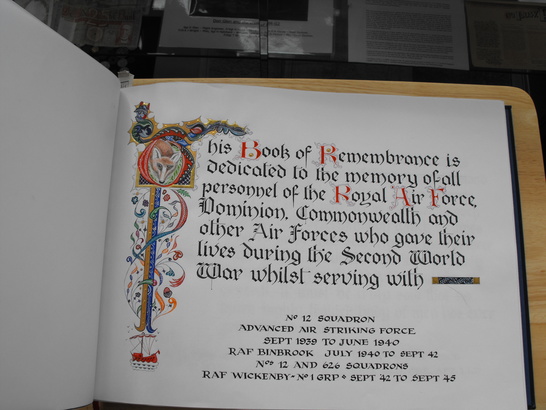 This Book of Remembrance is
dedicated to the memory of all
personnel of the Royal Air Force,
Dominion, Commonwealth and
other Air Forces who gave their
lives during the Second World
War whilst serving with
No 12 SQUADRON
ADVANCED AIR STRIKING FORCE
SEPT 1939 TO JUNE 1940
RAF BINBROOK JULY 1940 TO SEPT 42
Nos 12 AND 626 SQUADRONS
RAF WICKENBY - No 1 GRP * SEPT 42 TO SEPT 45